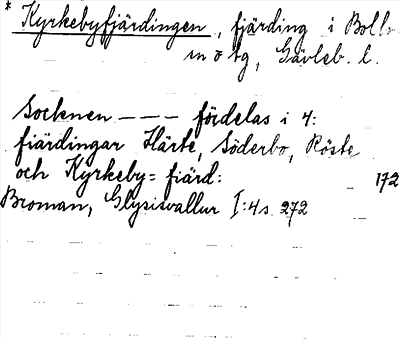 * Kyrkebyfjärdingen, fjärding i Bolln
m ö tg, Gävleb. l.
Socknen – – – fördelas i 4:
fiärdingar Härte, Söderbo, Röste
och Kyrkeby= fiärd: 172
Broman, Glysisvallur I:4 s. 272